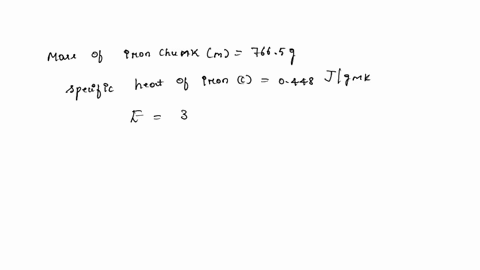 Mass of iron chunk (m) = 766.5 g
specific heat of iron (c) = 0.448 J/gmk
E = 3